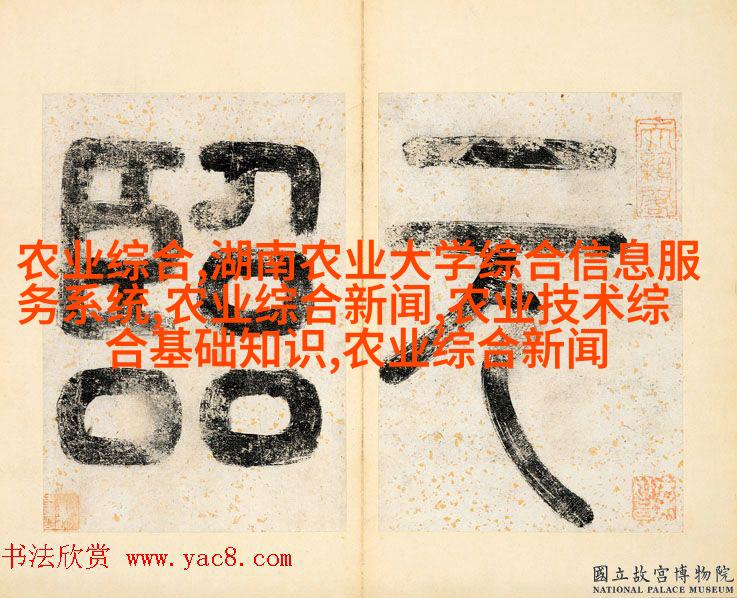 元
农业综合,湖南农业大学综合信息服
务系统,农业综合新闻,农业技术综
合基础知识,农业综合新闻
书法欣赏 www.yac8.com
國立故宮博物院
NATIONAL PALACE MUSEUM